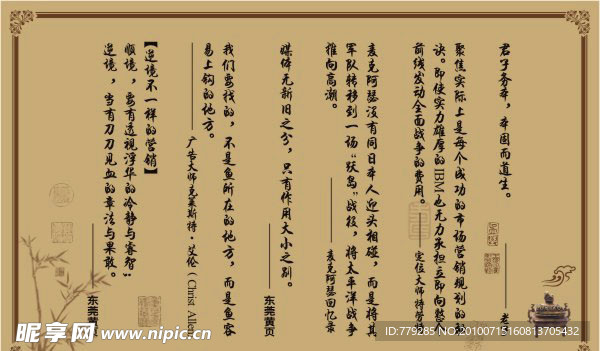 君子务本，本固而道生。
聚焦实际上是每个成功的市场营销规划的秘
诀。即使实力雄厚的IBM也无力承担立即向整个
前线发动全面战争的费用。——定位大师特劳
麦克阿瑟没有同日本人迎头相碰，而是将其
军队转移到一场“跃岛”战役，将太平洋战争
推向高潮。
——麦克阿瑟回忆录
媒体无新旧之分，只有作用大小之别。
——东莞黄页
我们要找的，不是鱼所在的地方，而是鱼容
易上钩的地方。
——广告大师克莱斯特·艾伦（Christ Allen
【逆境不一样的营销】
顺境，要有透视浮华的冷静与睿智”
逆境，当有刀刀见血的章法与果敢。
——东莞黄页
昵享网 www.nipic.cn
ID:779285 NO:20100715160813705432